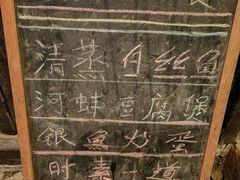 清蒸白丝鱼
河蚌豆腐煲
銀魚炒蛋
时素一道